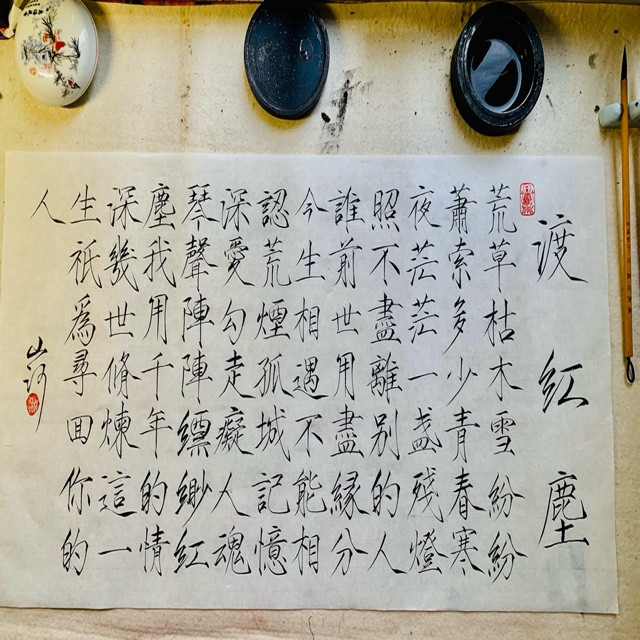 渡紅塵
荒草枯木雪紛紛
蕭索多少青春寒
夜茫茫一盞殘燈
照不盡離別的人
誰前世用盡緣分
今生相遇不能相
認荒煙孤城記憶
深愛勾走癡人魂
琴聲陣陣縹緲紅
塵我用千年的情
深幾世脩煉這一
生祇爲尋回你的
人
山河